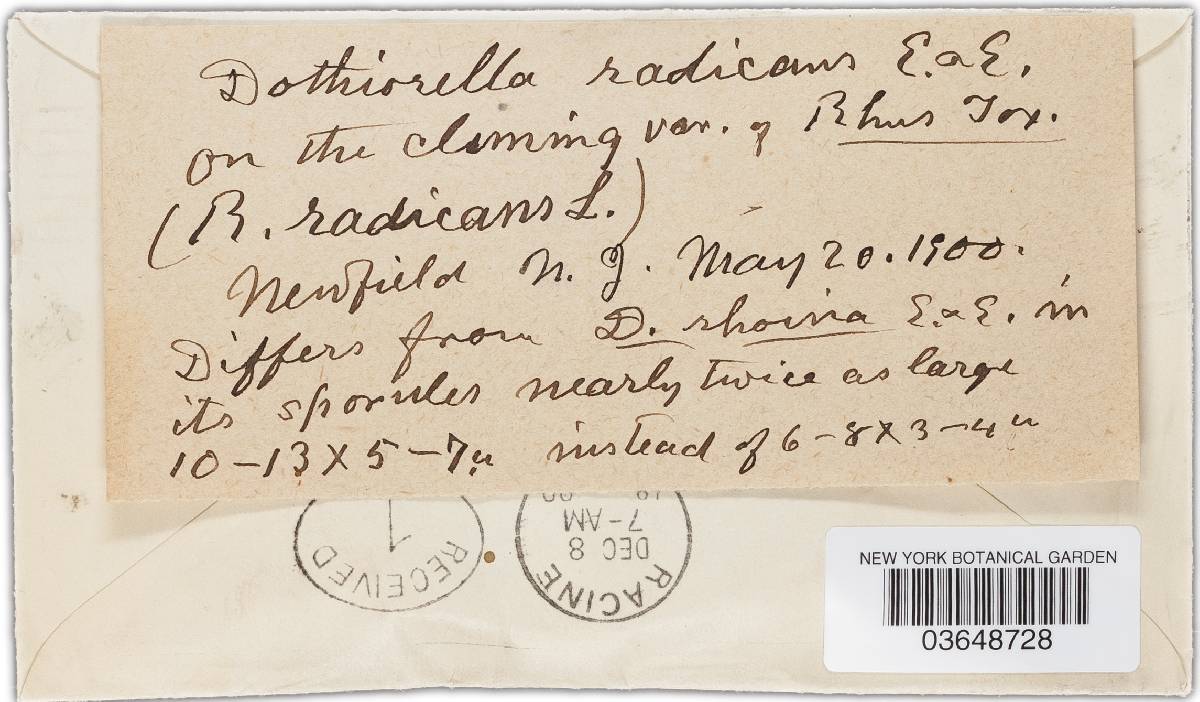 Dothiorella radicans E. & E.
on the climing var. of Rhus Tox.
(R. radicans L.)
Newfield N. J. May 20. 1900.
Differs from D. rhoina E. & E. in
its sporules nearly twice as large
10-13 X 5-7 u instead of 6-8 X 3-4 u
RECEIVED
1
RACINE
DEC 8
7-AM
NEW YORK BOTANICAL GARDEN
03648728